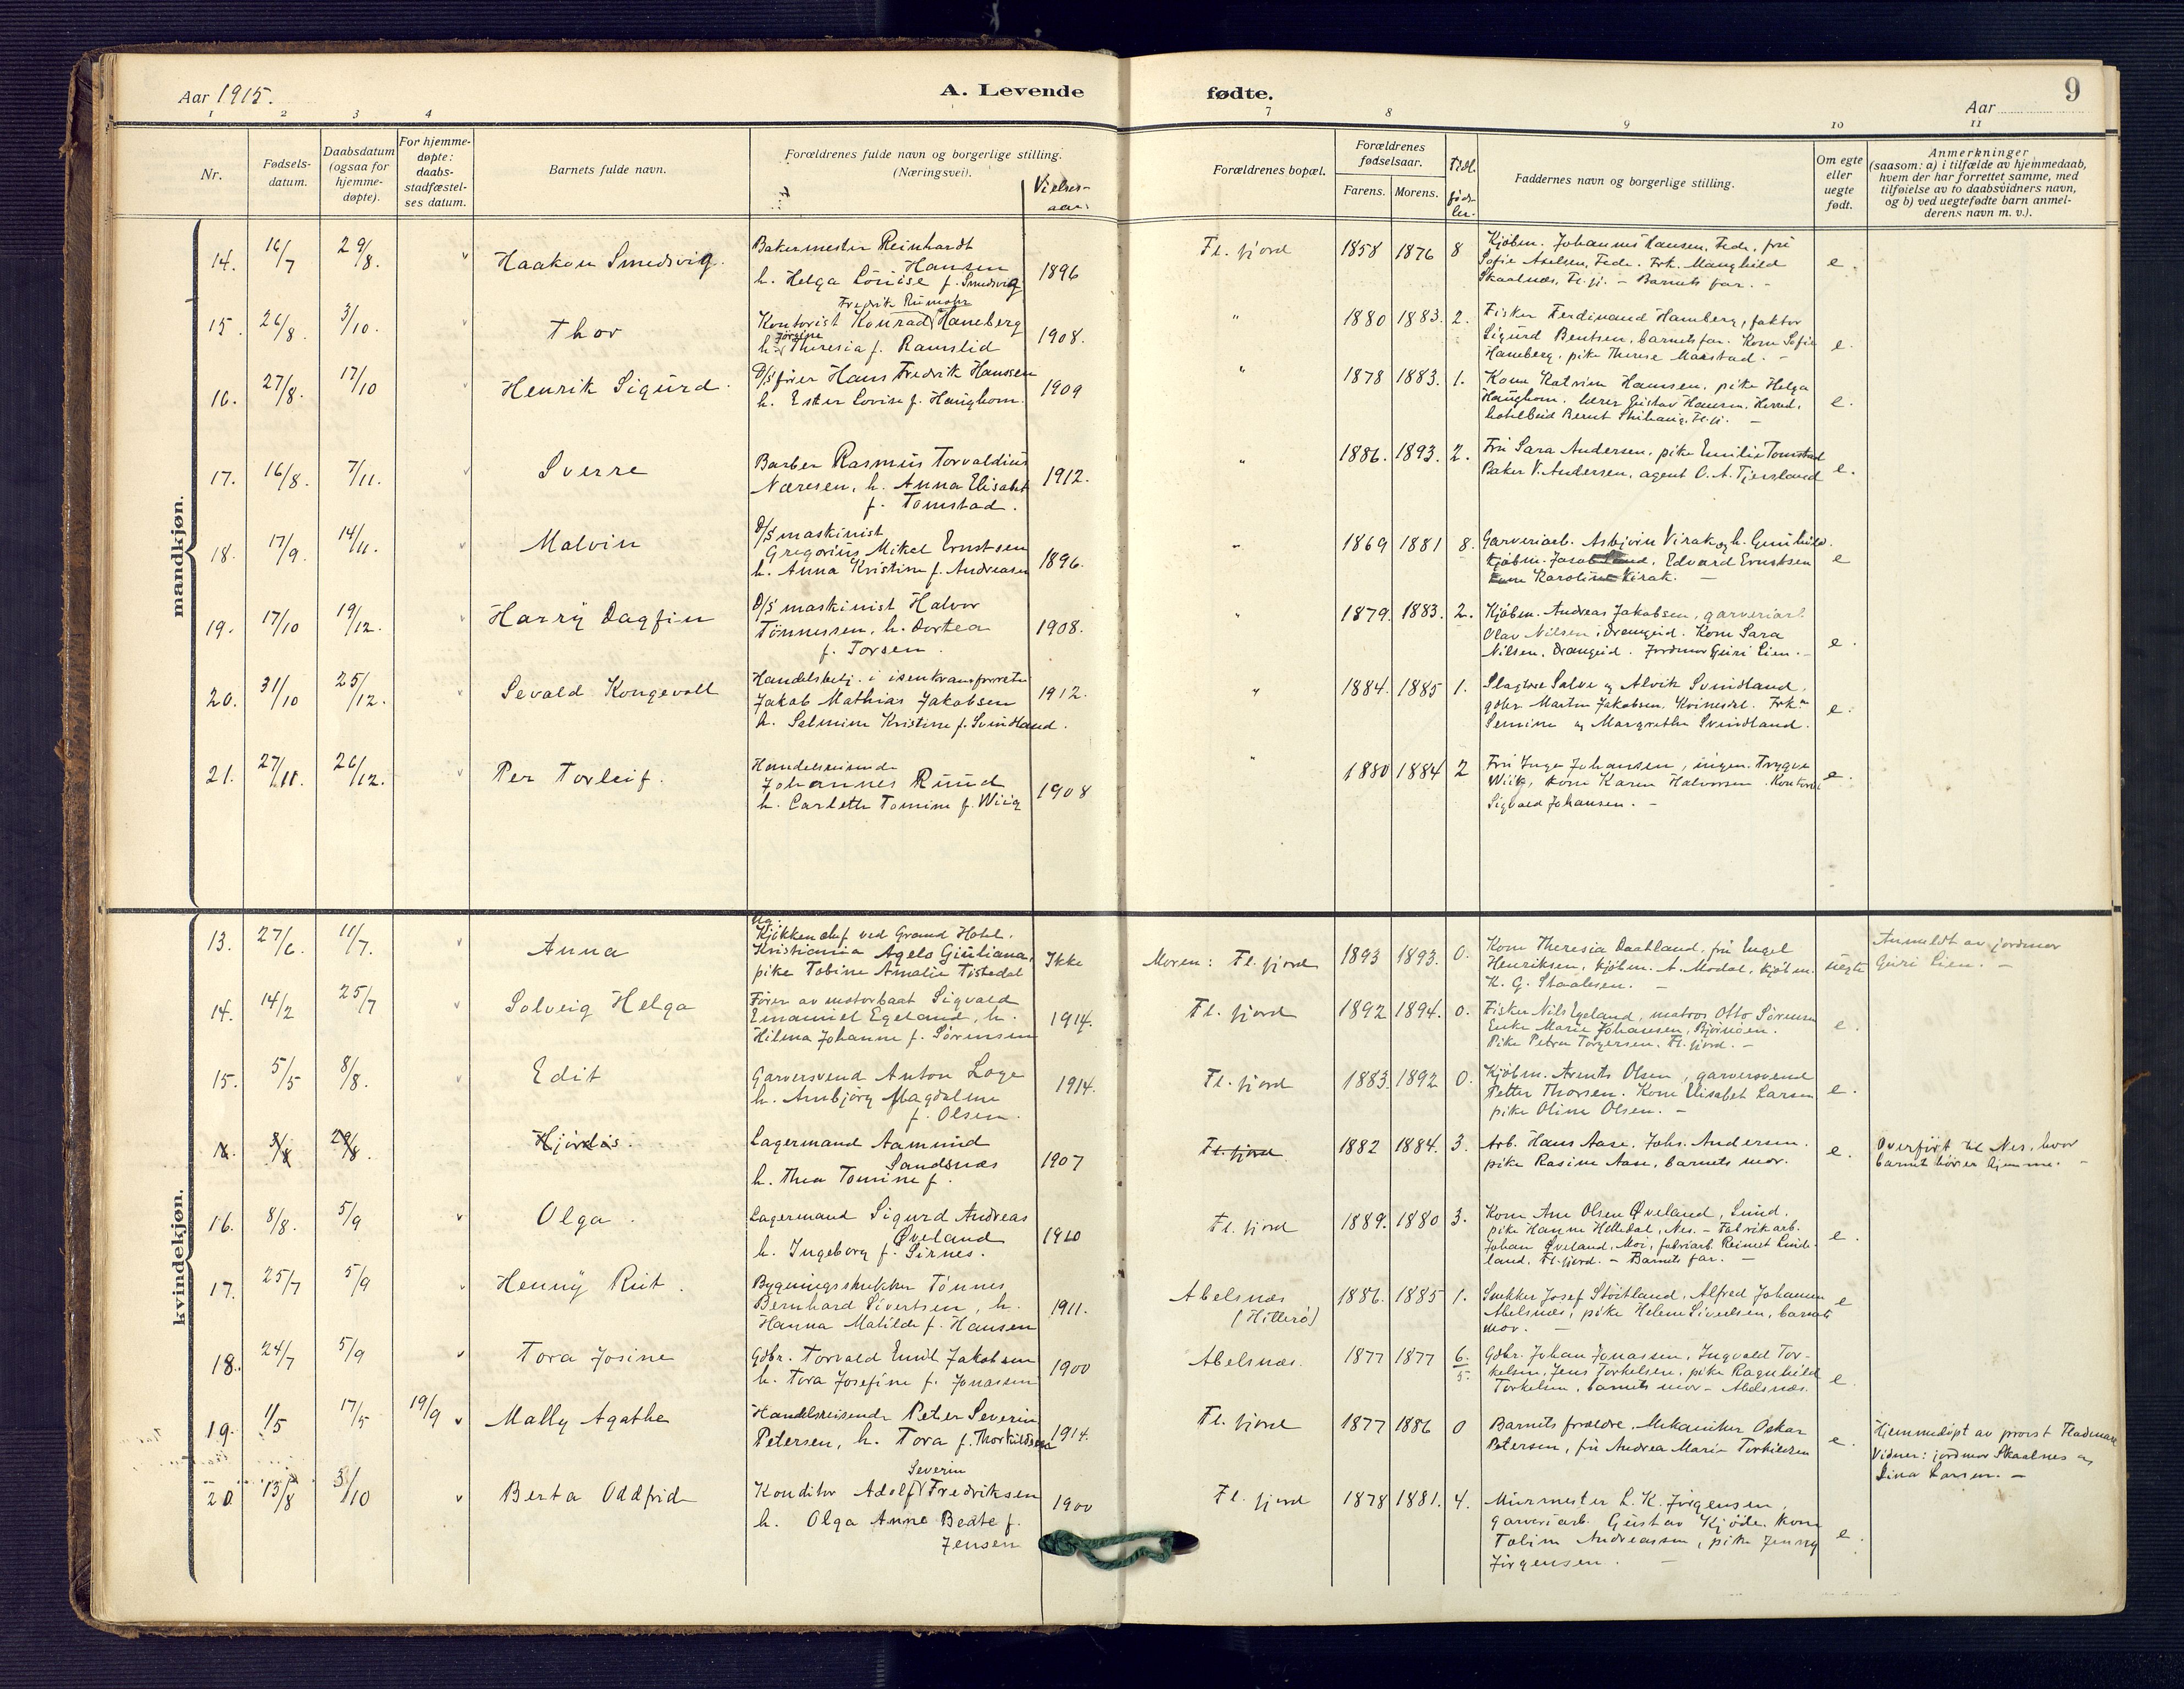 Aar 1915.
A. Levende fødte.
9
Aar
1 2 3 4 7 8 9 10 11
Nr.
Fødsels-
datum.
Daabsdatum
(ogsaa for
hjemme-
døpte).
For hjemme-
døpte:
daabs-
stadfæstel-
ses datum.
Barnets fulde navn.
Forældrenes fulde navn og borgerlige stilling.
(Næringsvei).
Vielses-
aar.
Forældrenes bopæl.
Forældrenes
fødselsaar.
Farens. Morens.
Tidl.
føds-
ler.
Faddernes navn og borgerlige stilling.
Om egte
eller
uegte
født.
Anmerkninger
(saasom: a) i tilfælde av hjemmedaab,
hvem der har forrettet samme, med
tilføielse av to daabsvidners navn,
og b) ved uegtefødte barn anmel-
derens navn m. v.).
mandkjøn.
14. 16/7 29/8. Haakon Smedsvig.
Bakermester Reinhardt
Hansen
h. Helga Louise f. Smedsvig
1896
Fl. fjord 1858 1876 8
Kjøbm. Johannes Hansen, Fede, fru
Sofie Axelsen, Fede. Frk. Manghild
Skaalnæs, Fl.fj. - Barnets far. -
e.
15. 26/8. 3/10. Thor
Fredrik Rumohr
Kontorist Konrad Haneberg
Jörgine
h. Theresia f. Ramslid
1908.
" 1880 1883. 2.
Fisker Ferdinand Haneberg, faktor
Sigurd Bentsen, barnets far. Kone Sofie
Haneberg, pike Therese Marstad. -
e.
16. 27/8. 17/10 Henrik Sigurd.
D/S fører Hans Fredrik Hanssen
h. Ester Lovise f. Haughom.
1909
" 1878 1883. 1.
Kone Katrine Hansen, pike Helga
Haughom, lærer Gustav Hansen, Herred,
hotelbud Bernt Fl.fj. -
e.
17. 16/8. 7/11. Sverre
Barber Rasmus Torvaldius
Næresen, h. Anna Elisabet
f. Tomstad.
1912.
" 1886. 1893. 2.
Fru Sara Andersen, pike Emilie Tomstad
Baker V. Andersen, agent O. A. Tjersland
e.
18. 17/9. 14/11. Malvin
D/S maskinist
Gregorius Mikel Ernstsen
h. Anna Kristine f. Andreasen
1896.
" 1869 1881 8.
Garveriarb. Asbjörn Virak og h. Gunhild.
Kjøbm. Jasob Lund, Edvard Ernstsen
Kone Karoline Virak. -
e
19. 17/10 19/12. Harry Dagfin
D/S maskinist Halvor
Tönnessen, h. Dortea
f. Torsen.
1908.
" 1879. 1883. 2.
Kjøbm. Andreas Jakobsen, garveriarb.
Olav Nilsen, Drangeid. Kone Sara
Nilsen, Drangeid. Jordmor Guri Lien. -
e.
20. 31/10 25/12. Sevald Kongevoll
Handelsbetj. i isenkramforretn.
Jakob Mathias Jakobsen
h. Salmine Kristine f. Svindland.
1912.
" 1884. 1885 1.
Slagtere Salve og Alvik Svindland,
gdbr. Martin Jakobsen, Kvinesdal. Frkn
Semine og Margrethe Svindland.
e.
21. 27/11. 26/12. Per Torleif.
Handelsreisende
Johannes Ruud
h. Carleth Tomine f. Wiig
1908
" 1880 1884 2
Fru Inga Johansen, ingen. Trygve
Wiig, kone Karen Halvorsen. Kontorist
Sigvald Johansen. -
e.
kvindekjøn.
13. 27/6. 11/7. Anna
Ug.
Kjökkenchef ved Grand Hotel,
Kristiania Agelo Giuliana,
pike Tobine Amalie Tistedal
Ikke
Moren: Fl. fjord 1893 1893. 0.
Kone Theresia Daatland, fru Engel
Henriksen, kjøbm. A. Modal, kjøbm.
K. G. Staalesen. -
uegte
Anmeldt av jordmor
Guri Lien. -
14. 14/2 25/7 Solveig Helga
Fører av motorbaat Sigvald
Emanuel Egeland, h.
Hilma Johanne f. Sörensen
1914.
Fl. fjord 1892 1894. 0.
Fisker Nils Egeland, matros Otto Sörensen
Enke Marie Johansen, Björnöen.
Pike Petra Torgersen, Fl. fjord. -
e.
15. 5/5 8/8. Edit
Garversvend Anton Loge
h. Anbjørg Magdalene
f. Olsen.
1914.
Fl. fjord 1883. 1892 0.
Kjøbm. Arents Olsen, garversvend
Petter Thorsen. Kone Elisabet Larsen
pike Oline Olsen. -
e.
Hjördis.
Lagermand Aamund
Sandsnæs
h. Thea Tomine f.
1907
Fl. fjord. 1882 1884. 3.
Arb. Hans Aase, Johs. Andersen.
pike Rasine Aase, barnets mor.
e.
Overført til Nes, hvor
barnet hører hjemme. -
16. 8/8. 5/9 Olga.
Lagermand Sigurd Andreas
Øveland
h. Ingeborg f. Sirnes.
1910
Fl. fjord 1889. 1880 3.
Kone Ane Olsen Øveland, Lund.
pike Hanne Helledal, Nes. - Fabrikarb.
Johan Øveland, Moi, fabrikarb. Reinert Linde-
land, Fl. fjord. - Barnets far. -
e.
17. 25/7 5/9 Henny Rut.
Bygningssnekker Tönnes
Bernhard Sivertsen, h.
Hanna Matilde f. Hansen
1911.
Abelsnæs
(Hitterø)
1886. 1885 1.
Snekker Josef Støitland, Alfred Johansen
Abelsnæs, pike Helene Sivertsen, barnets
mor. -
e
18. 24/7 5/9 Tora Josine
Gdbr. Torvald Emil Jakobsen
h. Tora Josefine f. Jonassen
1900
Abelsnæs. 1877 1877 6/5.
Gdbr. Johan Jonassen, Ingvald Tor-
kelsen, Jens Torkelsen, pike Ragnhild
Torkelsen, barnets mor - Abelsnæs.
e.
19. 1/5 17/5 19/9 Mally Agathe
Handelsreisende Peter Severin
Petersen, h. Tora f. Thorkildsen
1914.
Fl. fjord 1877 1886 0
Barnets forældre, Mekaniker Oskar
Petersen, fru Andrea Marie Torkildsen
e.
Hjemmedøpt av provst Fladmark
Vidner: jordmor Skaalnes og
Lina Larsen. -
20. 13/8 3/10 Berta Oddfrid
Severin
Konditor Adolf Fredriksen
h. Olga Anne Beate f.
Jensen
1900
Fl. fjord 1878 1881. 4.
Murmester L. K. Jörgensen,
garveriarb. Gustav Kjöde. Kone
Tobine Andreassen, pike Jenny
Jörgensen. -
e.